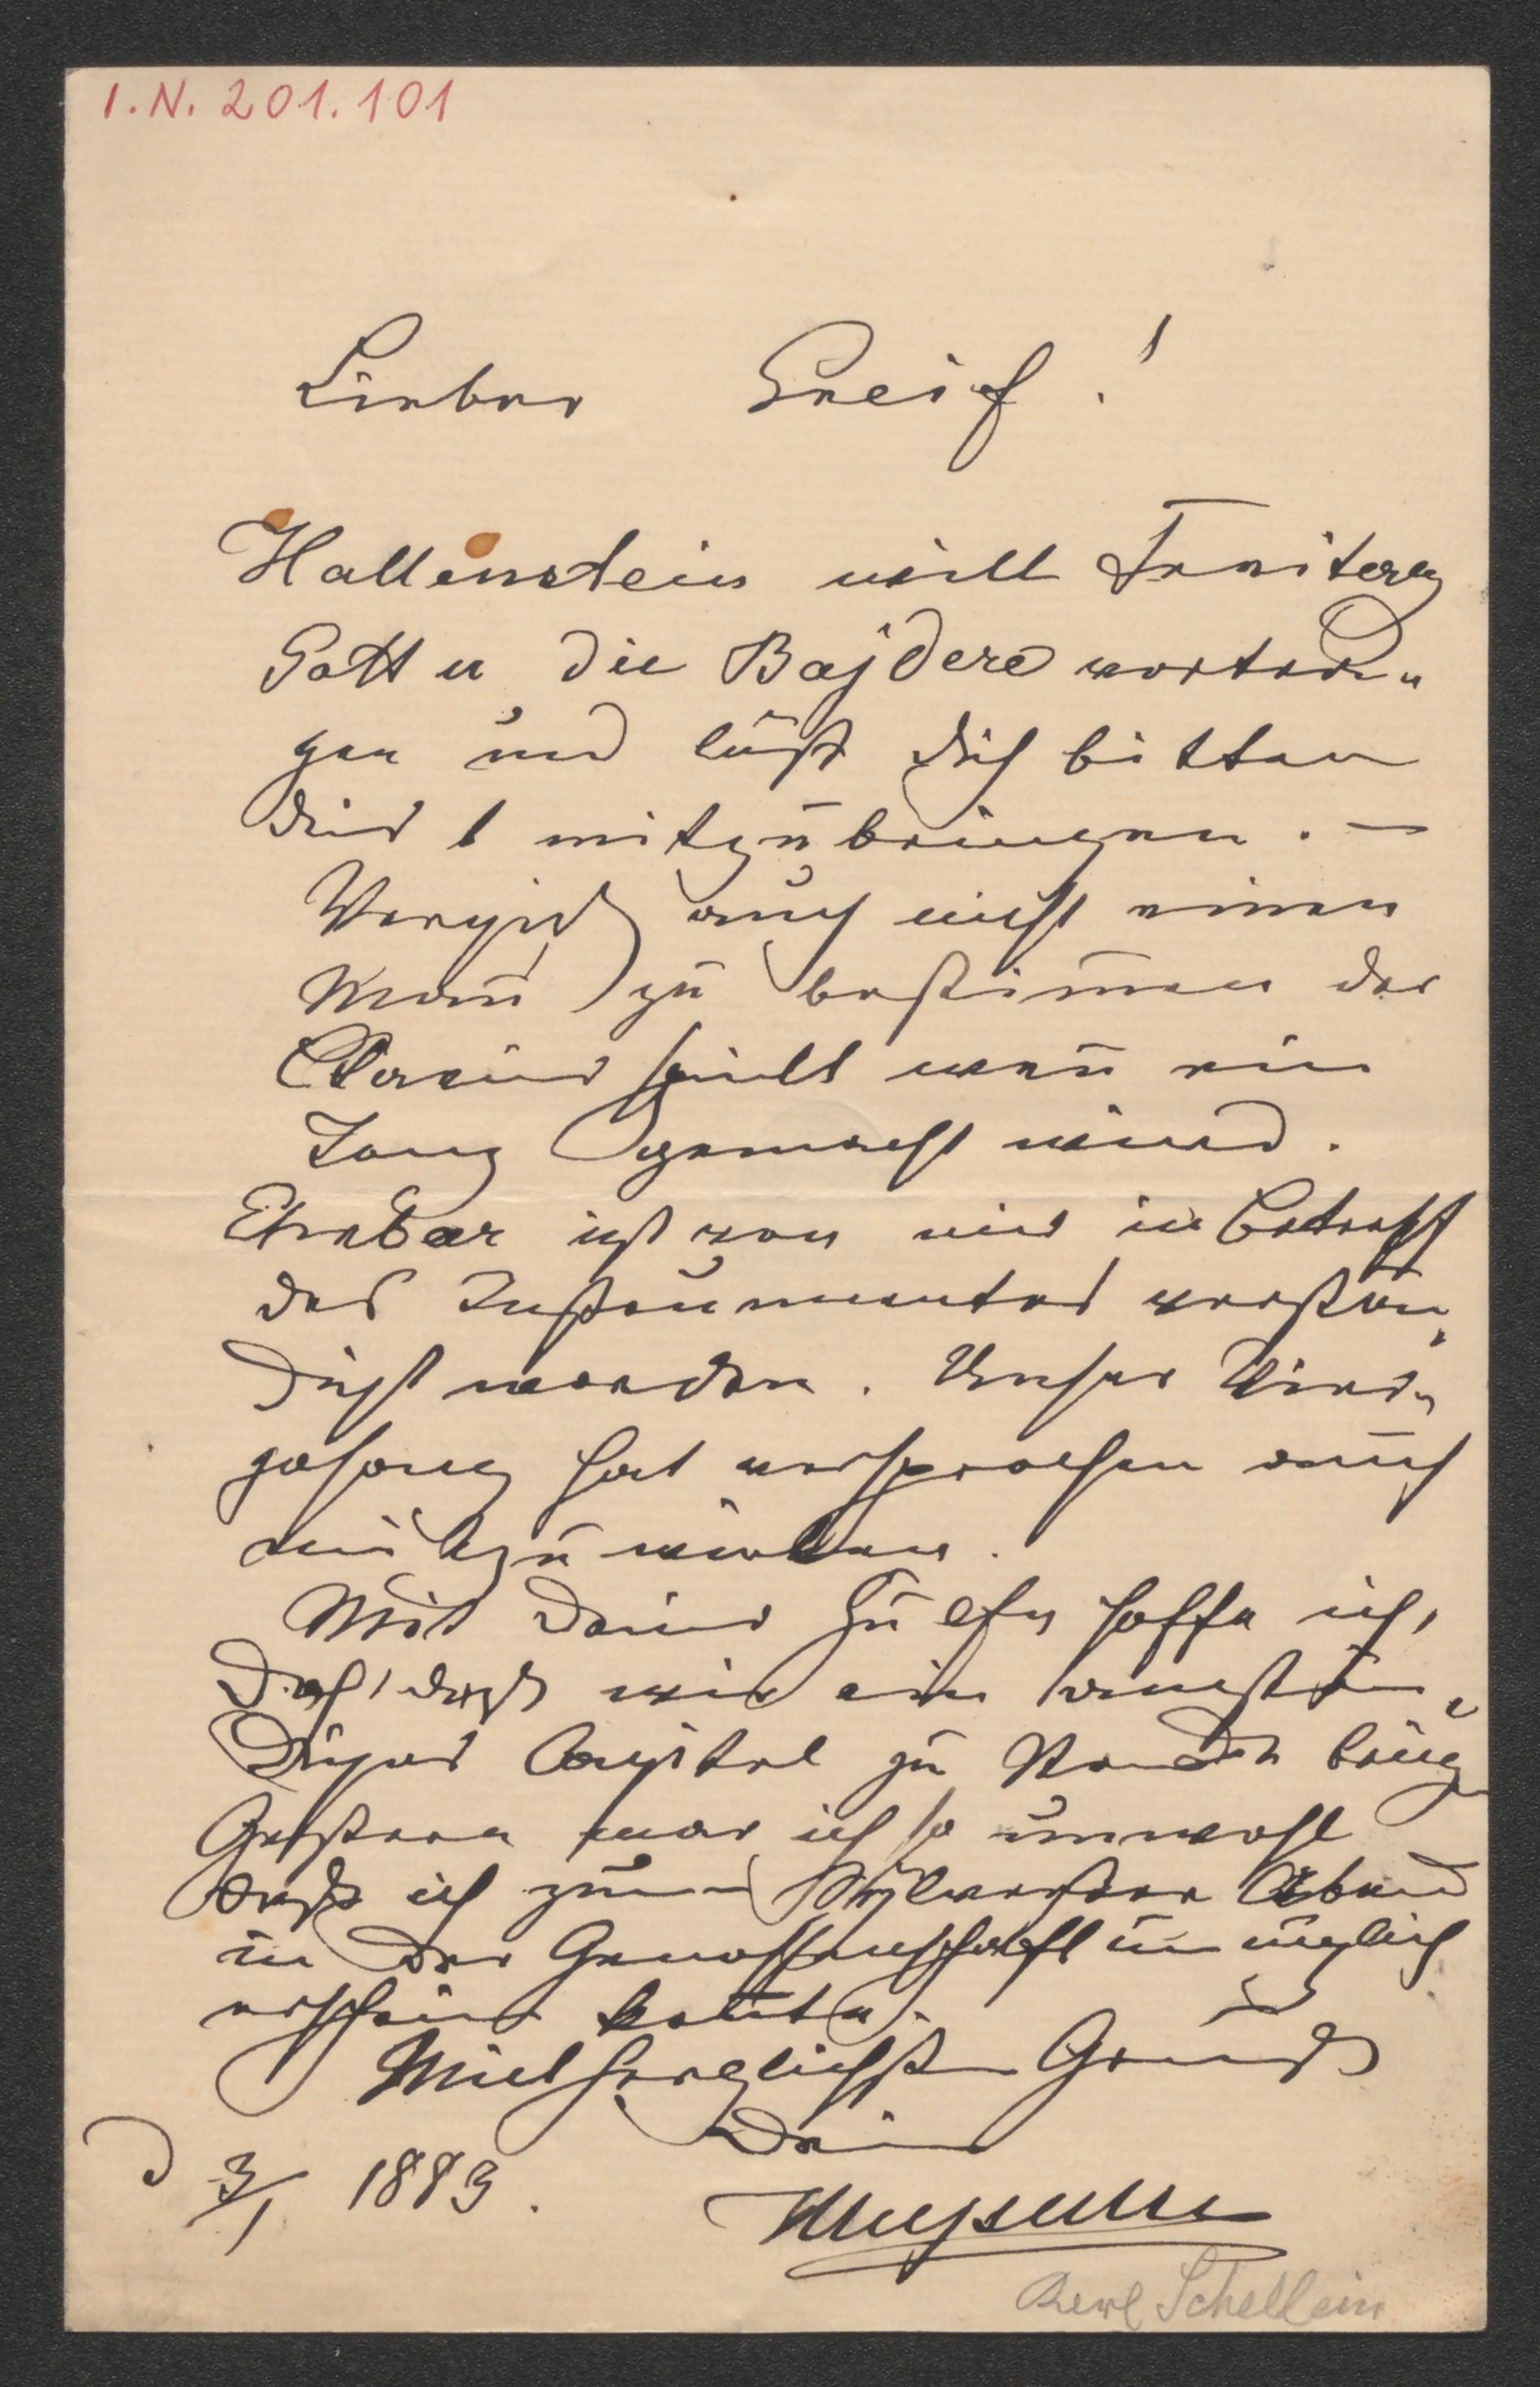 I.N. 201.101
Lieber Greif!
Hallenstein will Freitag
Gott u die Bajdere vortra„
gen und läßt dich bitten
dies mitzubringen. —
Vergiß auch nicht einen
Mann̄ zu bestim̄en der
Clavier spielt wen̄ ein
Tanz gemacht wird.
Ehrbar ist von mir in betreff
des Instrumentes verstän„
digt worden. Unser
gesang hat versprochen auch
mitzuwirken.
Mit deiner Hülfe hoffe ich,
daß wir ein anstän„
diges Capitel zu Stande bring
Gestern war ich so unwohl
daß ich zum Sylvester Abend
in der Genossenschaft unmöglich
erscheinen kon̄te.
Mit herzlichsten Gruß
Dein
d 3/1 1883.
Karl Schellein